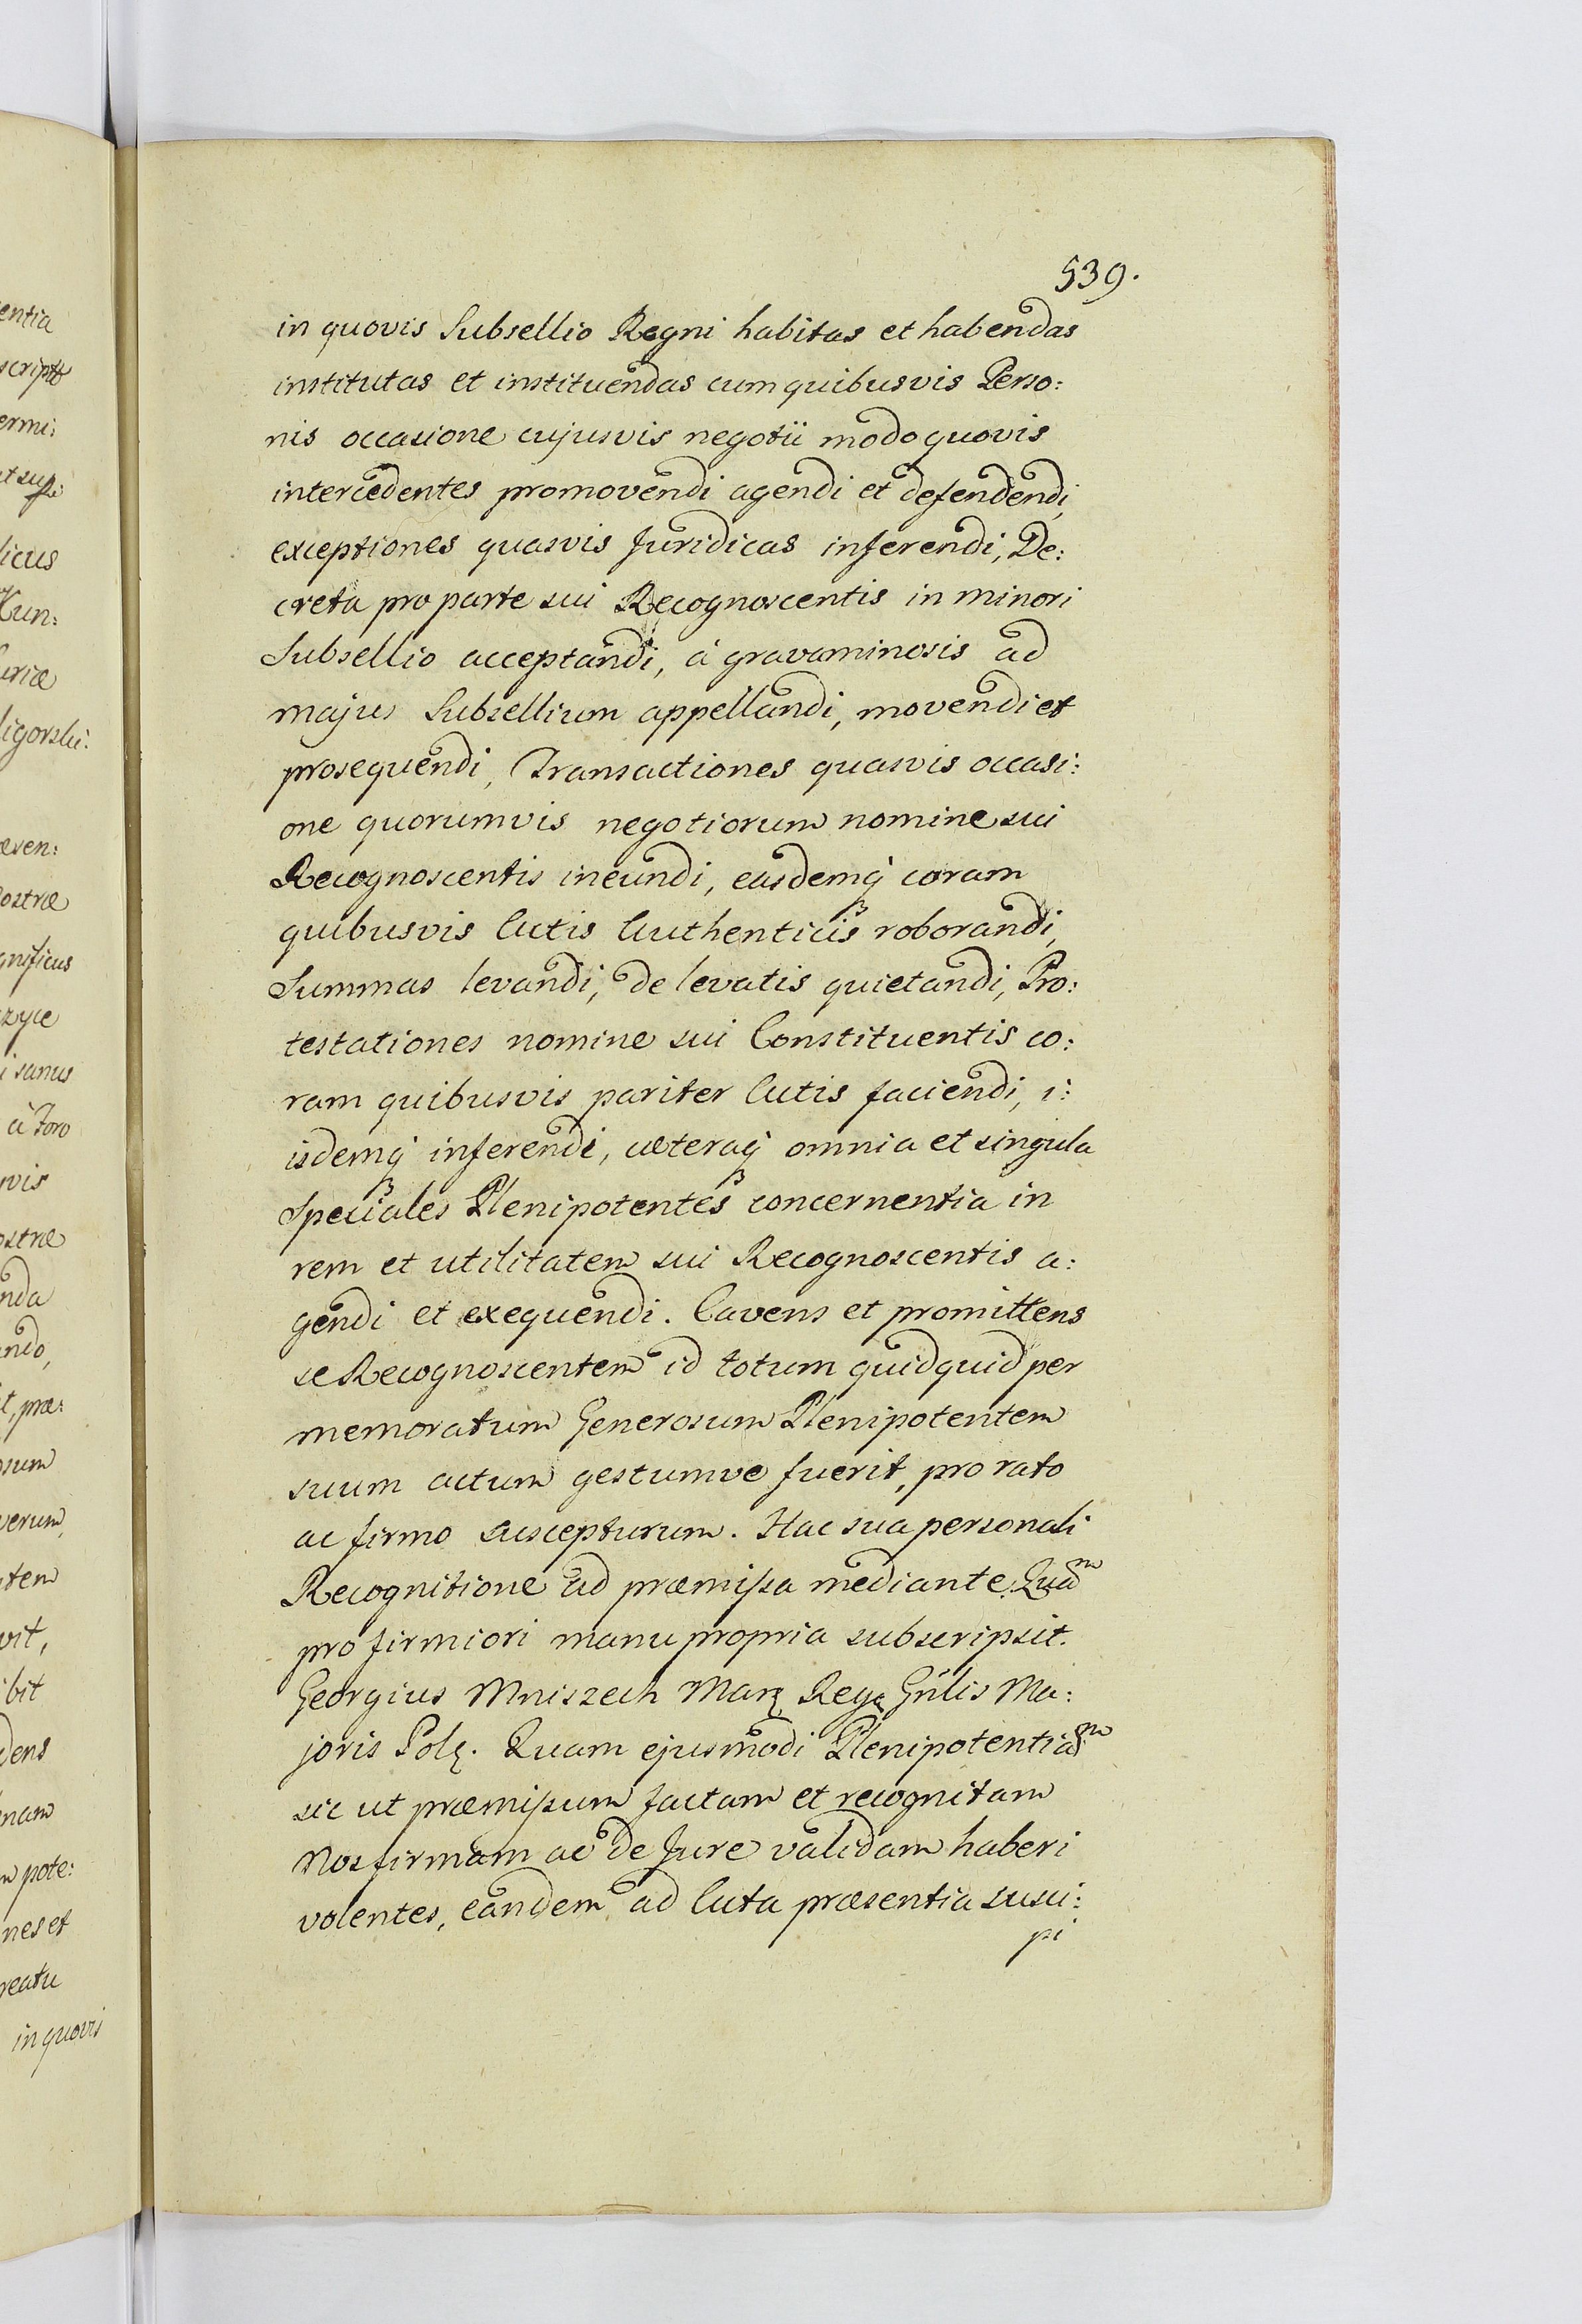 539.
in quovis Subsellio Regni habitas et habendas
institutas et instituendas cum quibusvis Perso:
nis occasione cujusvis negotii modo quovis
intercedentes promovendi agendi et defendendi,
exceptiones quasvis Juridicas inferendi, De:
creta pro parte sui Recognoscentis in minori
Subsellio acceptandi, à gravaminosis ad
majus Subsellium appellandi, movendi et
prosequendi, Transactiones quasvis occasi:
one quorumvis negotiorum nomine sui
Recognoscentis ineundi, easdemq́ coram
quibusvis Actis Authenticis roborandi,
Summas levandi, de levatis quietandi, Pro:
testationes nomine sui Constituentis co:
ram quibusvis pariter Actis faciendi, i:
isdemq́ inferendi, cæteraq́ omnia et singula
Speciales Plenipotentes concernentia in
rem et utilitatem sui Recognoscentis a:
gendi et exequendi. Cavens et promittens
se Recognoscentem id totum quidquid per
memoratum Generosum Plenipotentem
suum actum gestumve fuerit, pro rato
ac firmo suscepturum. Hac sua personali
Recognitione ad præmissa mediante. Quam
pro firmiori manu propria subscripsit.
Georgius Mniszech Mar. Reg. Gńlis Ma:
joris Pol. Quam ejusmodi Plenipotentiam
sic ut præmissum factam et recognitam
Nos firmam ac de Jure validam haberi
volentes, eandem ad Acta præsentia susci:
pi
entia
ermi:
licus
Kun:
ligorski.
ostræ
gnificus
zyce
i sanus
à Foro
vis
ostræ
nda
ndo,
t, præ:
verum,
tem
vit,
bit
dens
nam
pote:
nes et
reatu
in quovis